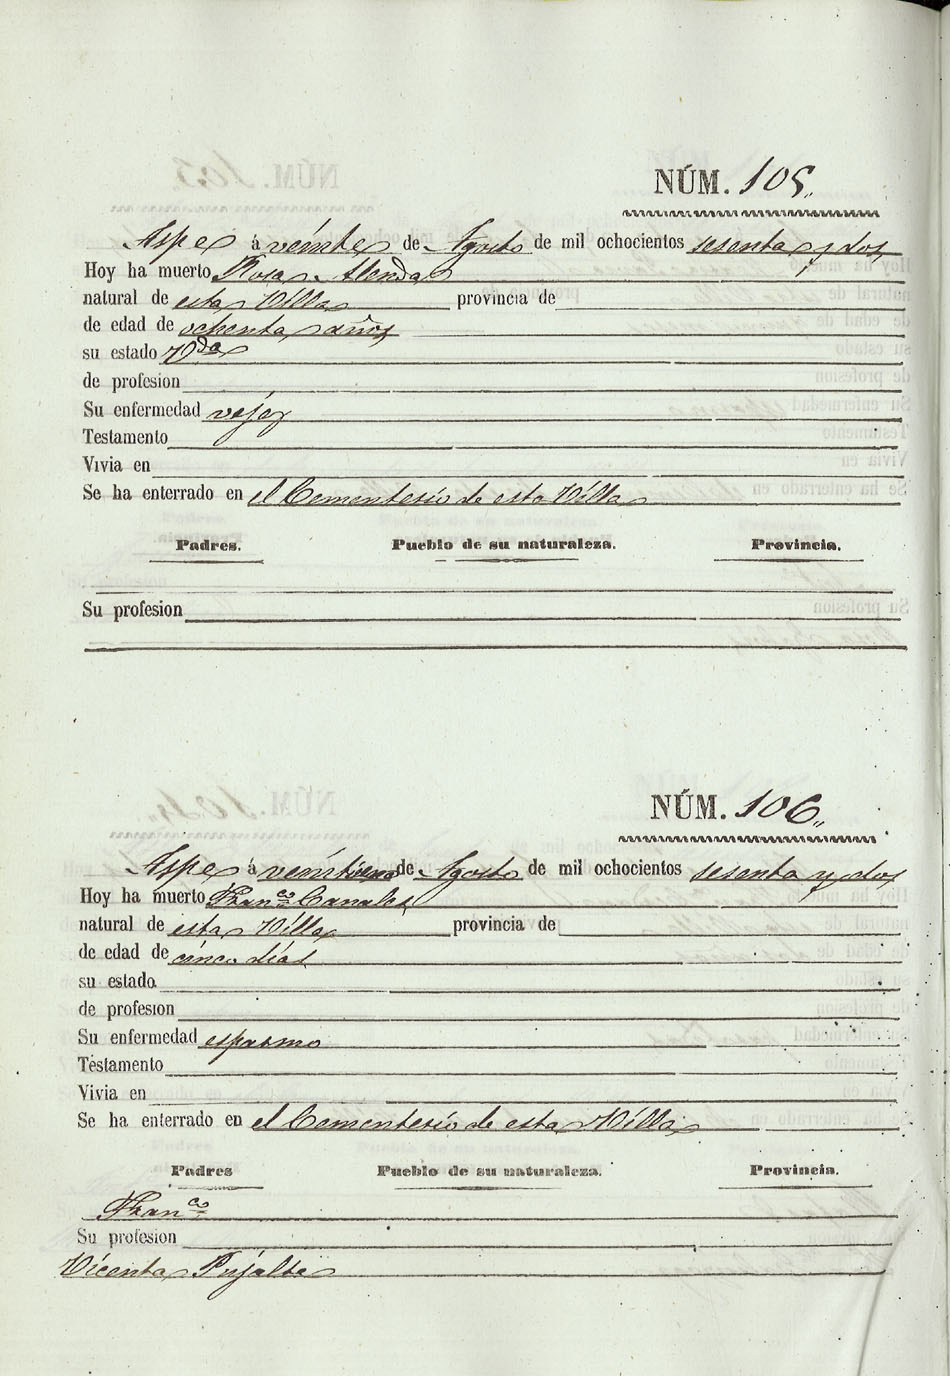 NÚM. 105.
Aspe à veinte de Agosto de mil ochocientos sesenta y dos
Hoy ha muerto Rosa
natural de esta Villa provincia de
de edad de ochenta años
su estado Vda
de profesion
Su enfermedad vejez
Testamento
Vivia en
Se ha enterrado en el Cementerio de esta Villa
Padres. Pueblo de su naturaleza. Provincia.
Su profesion
NÚM. 106.
Aspe à veintiuno de Agosto de mil ochocientos sesenta y dos
Hoy ha muerto Franco Canales
natural de esta Villa provincia de
de edad de cinco días
su estado
de profesion
Su enfermedad espasmo
Testamento
Vivia en
Se ha enterrado en el Cementerio de esta Villa
Padres Pueblo de su naturaleza. Provincia.
Franco
Su profesion
Vicenta Pujalte